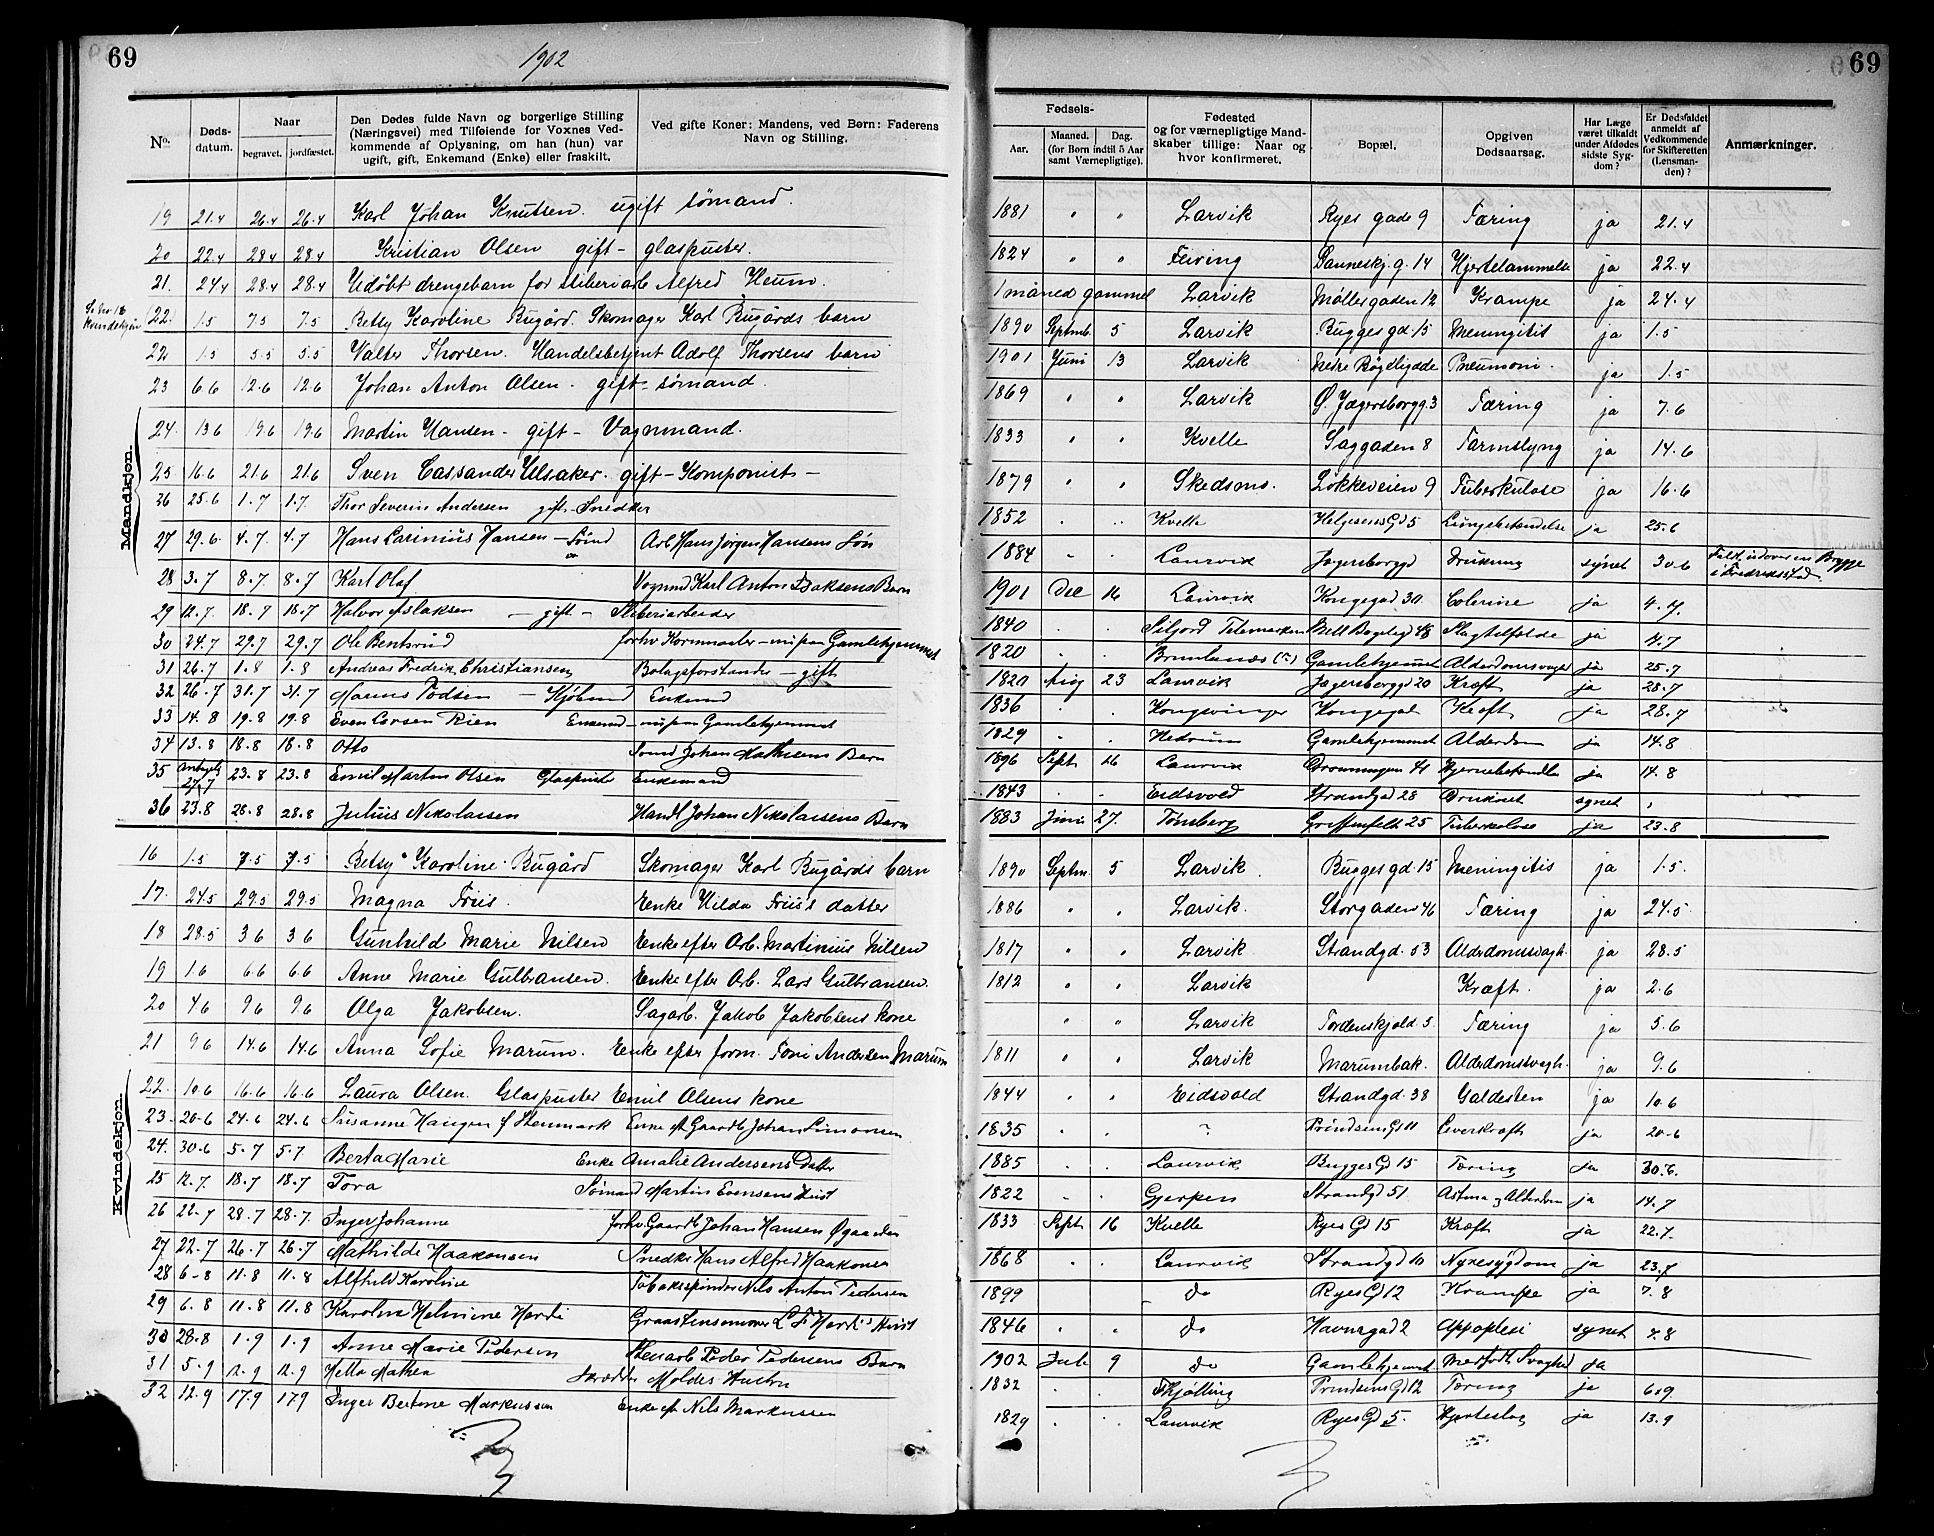 69
1902
69
No.
Døds-
datum.
Naar
begravet. jordfæstet.
Den Dødes fulde Navn og borgerlige Stilling
(Næringsvei) med Tilføiende for Voxnes Ved-
kommende af Oplysning, om han (hun) var
ugift, gift, Enkemand (Enke) eller fraskilt.
Ved gifte Koner: Mandens, ved Børn: Faderens
Navn og Stilling.
Fødsels-
Aar.
Maaned. Dag.
(for Børn indtil 5 Aar
samt Værnepligtige).
Fødested
og for værnepligtige Mand-
skaber tillige: Naar og
hvor konfirmeret.
Bopæl.
Opgiven
Dødsaarsag.
Har Læge
været tilkaldt
under Afdødes
sidste Syg-
dom?
Er Dødsfaldet
anmeldt af
Vedkommende
for Skifteretten
(Lensman-
den)?
Anmærkninger.
Mandkjøn.
19 21.4 26.4 26.4 Karl Johan Knutsen. ugift sømand. 1881 " " Larvik Ryes gade 9 Tæring ja 21.4
20 22.4 28.4 28.4 Kristian Olsen gift - glaspuster. 1824 " " Feiring Danneskj. g. 14 Hjertelammelse ja 22.4
21. 24.4 28.4 28.4 Udøbt drengebarn for stiberiarb Alfred Heum. 1 måned gammel Larvik Møllergaden 12 Krampe ja 24.4
22. 1.5 7.5 7.5 Betsy Karoline Bugård. Skomager Karl Bugårds barn 1890 Septmb. 5 Larvik Bugges gd. 15 Meningitis ja 1.5
22 1.5 5.5 5.5 Valter Thorsen. Handelsbetjent Adolf Thorsens barn 1901 Juni 13 Larvik Nedre Bøgeligdde Pneumoni. ja 1.5
23 6.6 12.6 12.6 Johan Anton Olsen. gift - sømand. 1869 " " Larvik Ø. Jægersborgg. 3 Tæring ja 7.6
24. 13.6 19.6 19.6 Martin Hansen - gift - Vognmand. 1833 " " Kvelle Saggaden 8 Tarmslyng ja 14.6
25 16.6 21.6 21.6 Sven Cassander Ulsaker. gift - Komponist - 1879 " " Skedsmo. Løkkeveien 9 Tuberkulose ja 16.6
26 25.6 1.7 1.7. Thor Severin Andersen gift - Snedker 1852 Kvelle Helgesens Gd 5 Lungebetændelse ja 25.6
27 29.6. 4.7. 4.7 Hans Larinius Hansen - Sømd Arb Hans Jørgen Hansens Søn 1884 Laurvik Jægersborggd Drukning synet 30.6 Faldt udover en Brygge
i Fredriksstad
28 3.7 8.7 8.7 Karl Olaf Vognmd Karl Anton Isaksens Barn 1901 Dec 16 Laurvik Kongegad 30. Colerine ja 4.7.
29 12.7. 18.7 18.7 Halvor Aslaksen - gift - Stiberiarbeider 1840 Siljord Telemarken ja 14.7
30 24.7 29.7 29.7 Ole Bentsrud forhv Kornmaaler - nu paa Gamlehjemmet 1820 Brunlanæs (?) Gamlehjemmet Alderdomssvaghed ja 25.7
31 26.7 1.8 1.8 Andreas Fredrik Christiansen Bolagsforstander - gift 1820 Aug 23 Laurvik Jægersborggd 20 Kræft ja 28.7
32 26.7 31.7 31.7 Hanns Todsen - Kjøbmd Enkemd 1836 Kongsvinger Kongegad Kræft ja 28.7
33 14.8 19.8 19.8 Even Larsen Rien Enkemd - nu paa Gamlehjemmet 1829 Hedrum Gamlehjemmet Alderdom ja 14.8
34 13.8 18.8 18.8 Otto Sømd Johan Mathisens Barn 1896 Sept 16 Laurvik Dronningen 41 Hjernebetændelse ja 14.8
35 27.7 23.8 23.8 Emil Martin Olsen Glaspuster Enkemand 1843 Eidsvold Strandgad 28 Druknet synet
36 23.8 28.8 28.8 Julius Nikolaisen Handl Johan Nikolaisens Barn 1883 Juni 27. Tønsberg Griffenfelt 25 Tuberkulose ja 23.8
Kvindekjøn.
16 1.5 7.5 7.5 Betsy Karoline Bugård Skomager Karl Bugårds barn 1890 Septm. 5 Larvik Bugges gd. 15 Meningitis ja 1.5.
17. 24.5 29.5 29.5 Magna Friis. Enke Hilda Friis's datter 1886 " " Larvik. Storgaden 46 Tæring ja 24.5
18 28.5 3.6 3.6 Gunhilde Marie Nilsen Enke efter Arb. Martinius Nilsen 1817 " " Larvik Strandgd. 53 Alderdomssvagh. ja 28.5
19 1.6 6.6 6.6 Anne Marie Gulbransen. Enke efter Arb. Lars Gulbransen. 1812 " " Larvik Kræft. ja 2.6
20 4.6 9.6 9.6 Olga Jakobsen. Sagarb. Jakob Jakobsens kone " " Larvik Tordenskjold. 5. Tæring ja 5.6
21 9.6 14.6 14.6 Anna Sofie Marum. Enke efter form. Toni Andersen Marum 1811 " " Larvik Marumbak. Alderdomssvagh. ja 9.6
22. 10.6 16.6 16.6 Laura Olsen. Glaspuster Emil Olsens kone 1844 " " Eidsvold Strandgd. 38 Galdesten ja 10.6
23. 20.6 24.6 24.6 Susanne Haugen f Stenmark Enke eft Gaardb Johan Simonsen 1835 ? Prindsens Gd 11 Leverkræft ja 20.6
24. 30.6 5.7 5.7 Berta Marie Enke Amalie Andersens Datter 1885 Laurvik Bugges Gd 15 Tæring ja 30.6.
25 12.7. 18.7 18.7 Tora Sømand Martin Evensens Hust 1822 Gjerpen Strandgd 51 Astma og Alderdom ja 14.7
26 22.7 28.7 28.7. Inger Johanne forhv Gaardb Johan Hansen Øgaarden 1833 Sept 16 Kvelle Ryes Gd 15 Kræft ja 22.7.
27 22.7 26.7 26.7 Mathilde Haakonsen Snedker Hans Alfred Haakonsen 1868 Laurvik Strandgd 10 Nyresygdom ja 23.7
28 6.8 11.8 11.8 Alfhild Karoline Tobaksspinder Nils Anton Pedersen 1899 do Ryes Gd 12 Krampe ja 7.8
29 6.8 11.8 11.8 Karoline Helmine Hardi L F Hardi's Hust 1846 " " do Havnegad 2 Appoplexi synet 7.8
30 28.8 1.9 1.9 Anne Marie Pedersen Stenarb Peder Pedersens Barn 1902 Juli 9 do Gamlehjemmet Medfødt Svaghed ja
31 5.9 12.9 12.9 Skrædder Moldes Hustru 1832 Prindsens Gd 12 Tæring ja 6.9
32 12.9 17.9 17.9 Inger Bertine Markussen Enke eft Nils Markussen 1829 Laurvik Ryes Gd 5. Hjerteslag ja 13.9